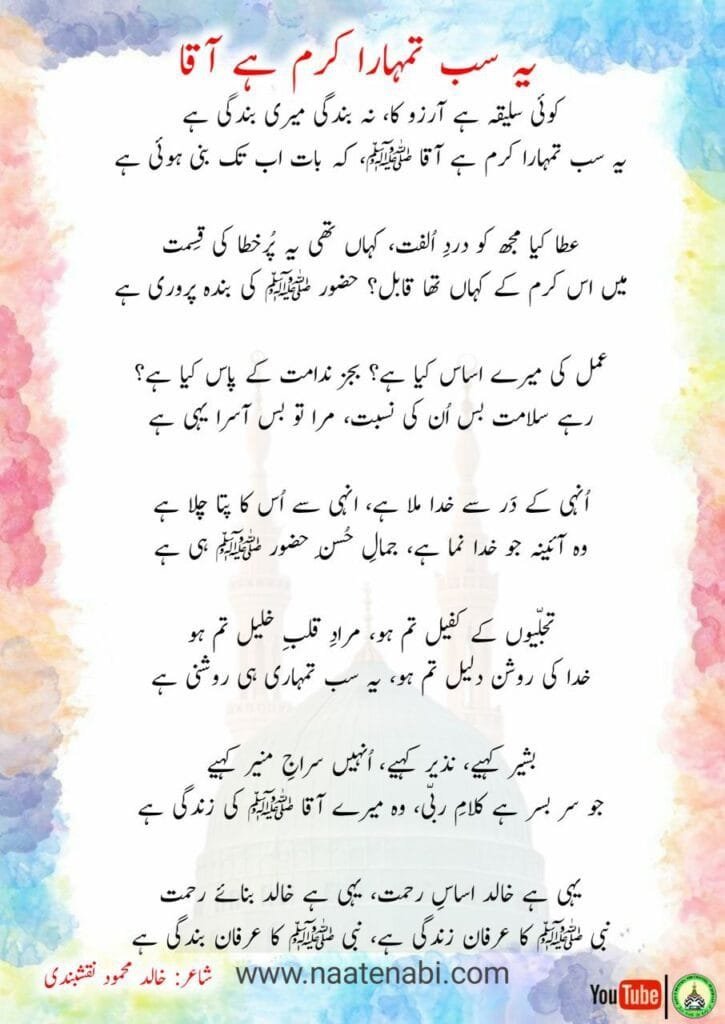 یہ سب تمہارا کرم ہے آقا
کوئی سلیقہ ہے آرزو کا، نہ بندگی میری بندگی ہے
یہ سب تمہارا کرم ہے آقا ﷺ، کہ بات اب تک بنی ہوئی ہے
عطا کیا مجھ کو دردِ اُلفت، کہاں تھی یہ پُرخطا کی قِسمت
میں اس کرم کے کہاں تھا قابل؟ حضور ﷺ کی بندہ پروری ہے
عمل کی میرے اساس کیا ہے؟ بجز ندامت کے پاس کیا ہے؟
رہے سلامت بس اُن کی نسبت، مرا تو بس آسرا یہی ہے
اُنہی کے دَر سے خدا ملا ہے، انہی سے اُس کا پتا چلا ہے
وہ آئینہ جو خدا نما ہے، جمالِ حُسنِ حضور ﷺ ہی ہے
تجلّیوں کے کفیل تم ہو، مرادِ قلبِ خلیل تم ہو
خدا کی روشن دلیل تم ہو، یہ سب تمہاری ہی روشنی ہے
بشیر کہیے، نذیر کہیے، اُنہیں سراجِ منیر کہیے
جو سر بسر ہے کلامِ ربّی، وہ میرے آقا ﷺ کی زندگی ہے
یہی ہے خالد اساسِ رحمت، یہی ہے خالد بنائے رحمت
نبی ﷺ کا عرفان زندگی ہے، نبی ﷺ کا عرفان بندگی ہے
شاعر: خالد محمود نقشبندی
www.naatenabi.com
YouTube